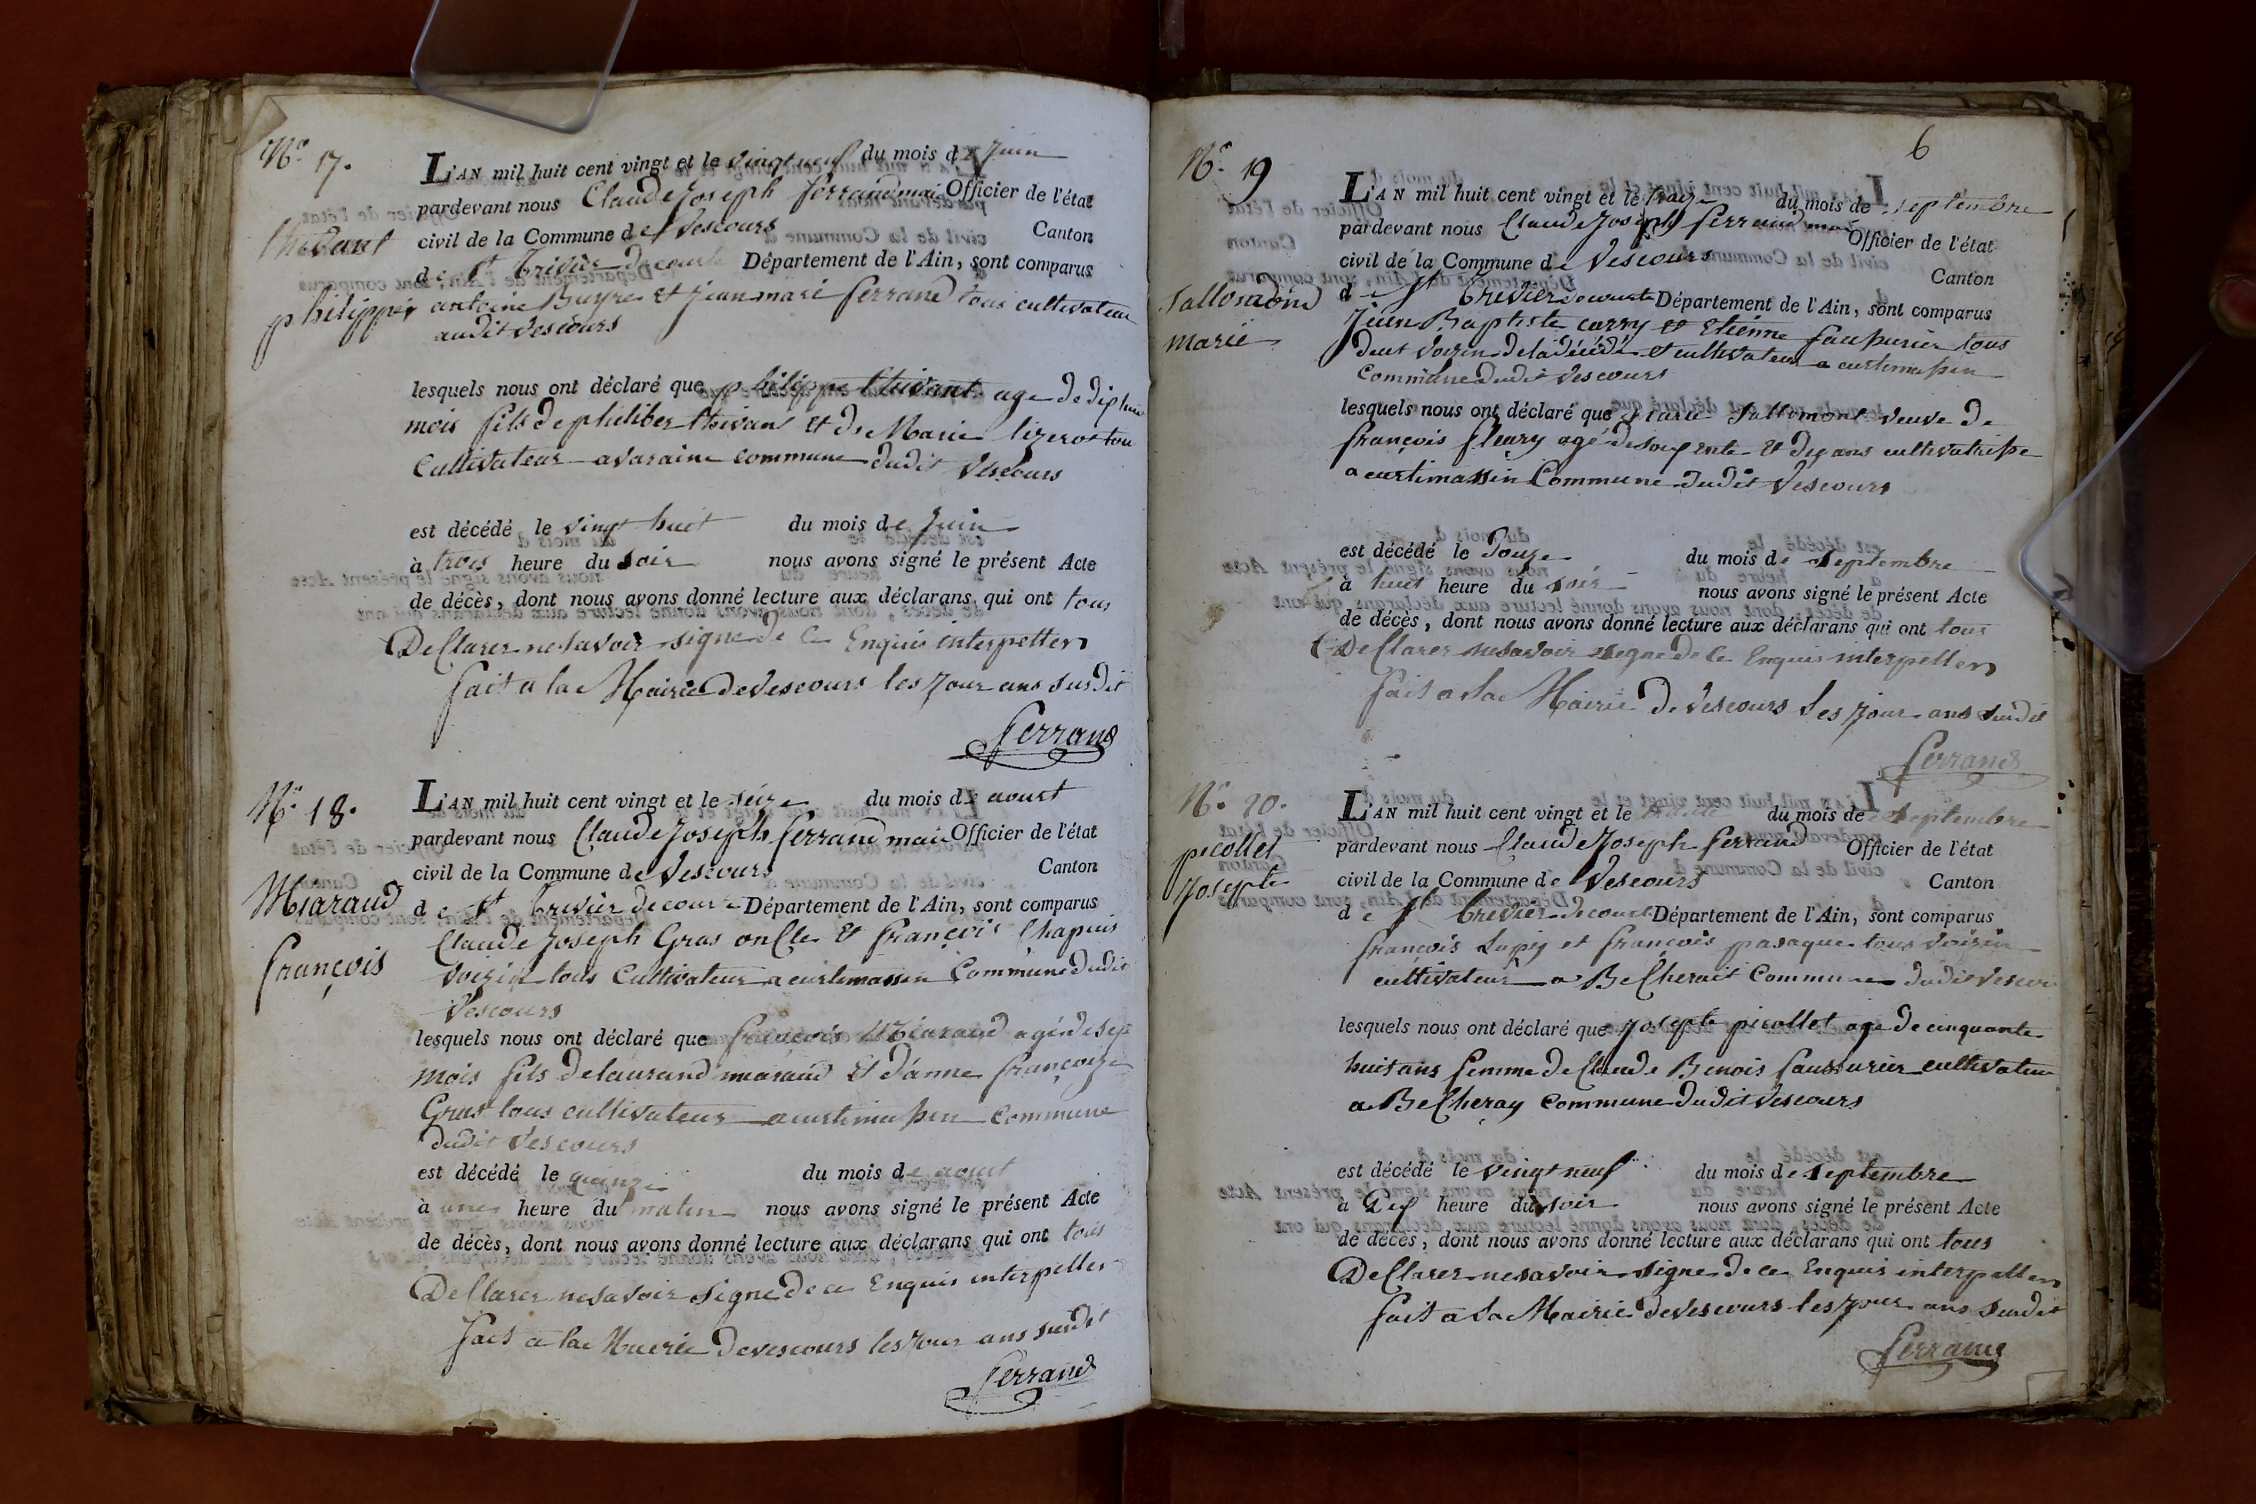 N.o 17.
thivant
philippe
L'AN mil huit cent vingt et le vingt neuf du mois de Juin
pardevant nous Claude Joseph ferrand mai Officier de l'état
civil de la Commune de Vescours Canton
de St trivier de courte Département de l'Ain, sont comparus
antoine Buyre et Jean mari ferrand tous cultivateur
audit Vescours
lesquels nous ont déclaré que philippe thivant age de diphuit
mois fils de philiber thivant Et de Marie tizerot tou
Cultivateur a varaine commune dudit Vescours
est décédé le vingt huit du mois de Juin
à trois heure du soir nous avons signé le présent Acte
de décès, dont nous avons donné lecture aux déclarans qui ont tous
DeClarer ne savoir signe de Ce Enquis interpeller
fait a la Mairie de Vescours les Jour ans susdit
ferrand
N.o 18.
Maraud
françois
L'AN mil huit cent vingt et le seize du mois de aoust
pardevant nous Claude Joseph ferrand mai Officier de l'état
civil de la Commune de Vescours Canton
de St trivier de courte Département de l'Ain, sont comparus
Claude Joseph Gras onCle Et françois Chapuis
voizin tous Cultivateur a curtimassin Commune dudit
Vescours
lesquels nous ont déclaré que françois Maraud agé de sept
mois fils de laurand maraud Et d'anne françoize
Gras tous cultivateur a curtimassin Commune
dudit Vescours
est décédé le quinze du mois de aoust
à une heure du matin nous avons signé le présent Acte
de décès, dont nous avons donné lecture aux déclarans qui ont tous
DeClarer ne savoir signe de ce Enquis interpeller
fait a la Mairie de vescours les Jour ans susdit
ferrand
6
N.o 19
Sallomond
marie
L'AN mil huit cent vingt et le traize du mois de septembre
pardevant nous Claude Joseph ferrand mai Officier de l'état
civil de la Commune de Vescours Canton
de St trevier de courte Département de l'Ain, sont comparus
Jean Baptiste carry et Etienne faussurier tous
deux voizin de la décédé et cultivateur a curtimassin
Commune dudit Vescours
lesquels nous ont déclaré que Marie Sallomont veuve de
françois fleury agé de soixente Et dix ans cultivatrisse
a curtimassin Commune dudit Vescours
est décédé le Douze du mois de septembre
à huit heure du soir nous avons signé le présent Acte
de décès, dont nous avons donné lecture aux déclarans qui ont tous
DeClarer ne savoir signe de Ce Enquis interpeller
fait a la Mairie de Vescours les Jour ans susdit
ferrand
N.o 20.
picollet
Josepte
L'AN mil huit cent vingt et le trente du mois de septembre
pardevant nous Claude Joseph ferrand Officier de l'état
civil de la Commune de Vescours Canton
de St trevier de courte Département de l'Ain, sont comparus
françois et françois pasaque tous voizin
cultivateur a BeCherait Commune dudit vescours
lesquels nous ont déclaré que Josepte picollet age de cinquante
huit ans femme de Claude Benois faussurier cultivateur
a BeCheray Commune dudit Vescours
est décédé le vingt neuf du mois de septembre
à heure du soir nous avons signé le présent Acte
de décès, dont nous avons donné lecture aux déclarans qui ont tous
DeClarer ne savoir signe de ce Enquis interpeller
fait a la Mairie de Vescours les Jour ans susdit
ferrand